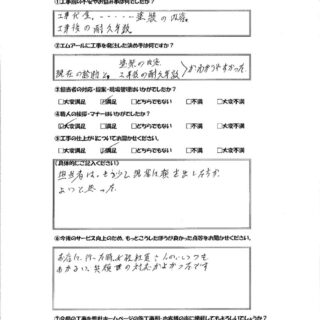 ①工事前の不安やお悩み事は何でしたか？
工事代金、・・・・・塗装の内容。
工事後の耐久年数
②エムアールに工事を発注した決め手は何ですか？
塗装の内容
現在の診断と、工事後の耐久年数 がわかりやすかった
③担当者の対応・提案・現場管理はいかがでしたか？
□大変満足 ☑満足 □どちらでもない □不満 □大変不満
④職人の挨拶・マナーはいかがでしたか？
☑大変満足 □満足 □どちらでもない □不満 □大変不満
⑤工事の仕上がりについてお聞かせください。
□大変満足 ☑満足 □どちらでもない □不満 □大変不満
（具体的にご記入ください）
担当者は、もう少し現場に顔を出した方が
よいと思った
⑥今後のサービス向上のため、もっとこうしたほうが良かった点等をお聞かせください。
お店に行った時、女性社員さんがいつも
あかるい、笑顔での対応がよかったです
⑦今回の工事を弊社ホームページの施工事例・お客様の声に掲載してもよろしいでしょうか？